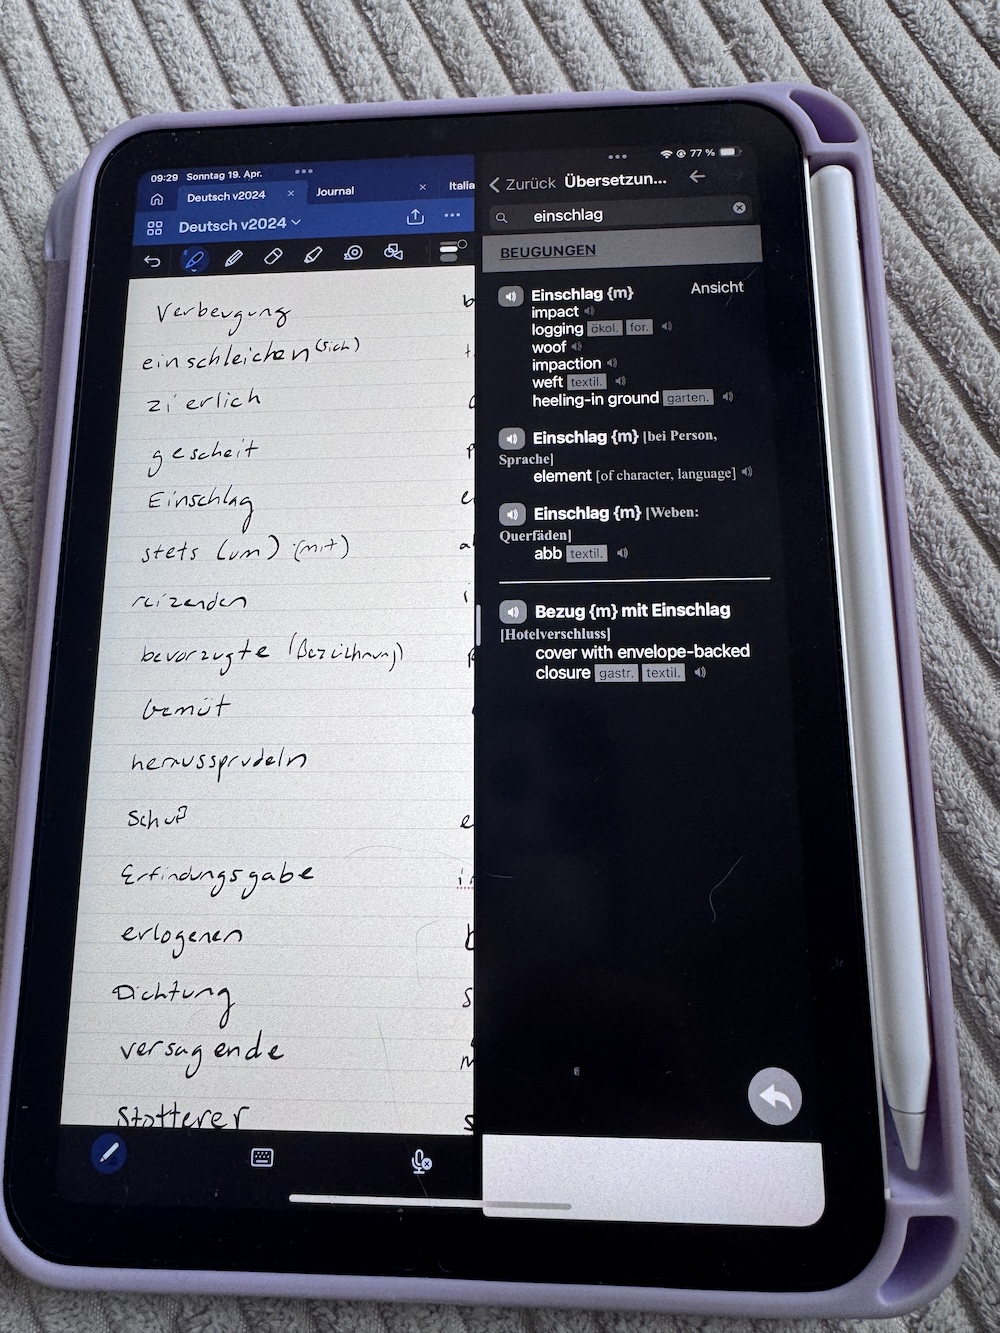 09:29 Sonntag 19. Apr.
Deutsch v2024 × Journal × Italia
Deutsch v2024
Verbeugung
einschleichen (sich)
zierlich
gescheit
Einschlag
stets (um) (mit)
reizenden
bevorzugte (Bezeichnung)
Gemüt
heraussprudeln
Schuß
Erfindungsgabe
erlogenen
Dichtung
versagende
Stotterer
77 %
Zurück Übersetzun...
einschlag
BEUGUNGEN
Einschlag {m} Ansicht
impact
logging ökol. for.
woof
impaction
weft textil.
heeling-in ground garten.
Einschlag {m} [bei Person,
Sprache]
element [of character, language]
Einschlag {m} [Weben:
Querfäden]
abb textil.
Bezug {m} mit Einschlag
[Hotelverschluss]
cover with envelope-backed
closure gastr. textil.